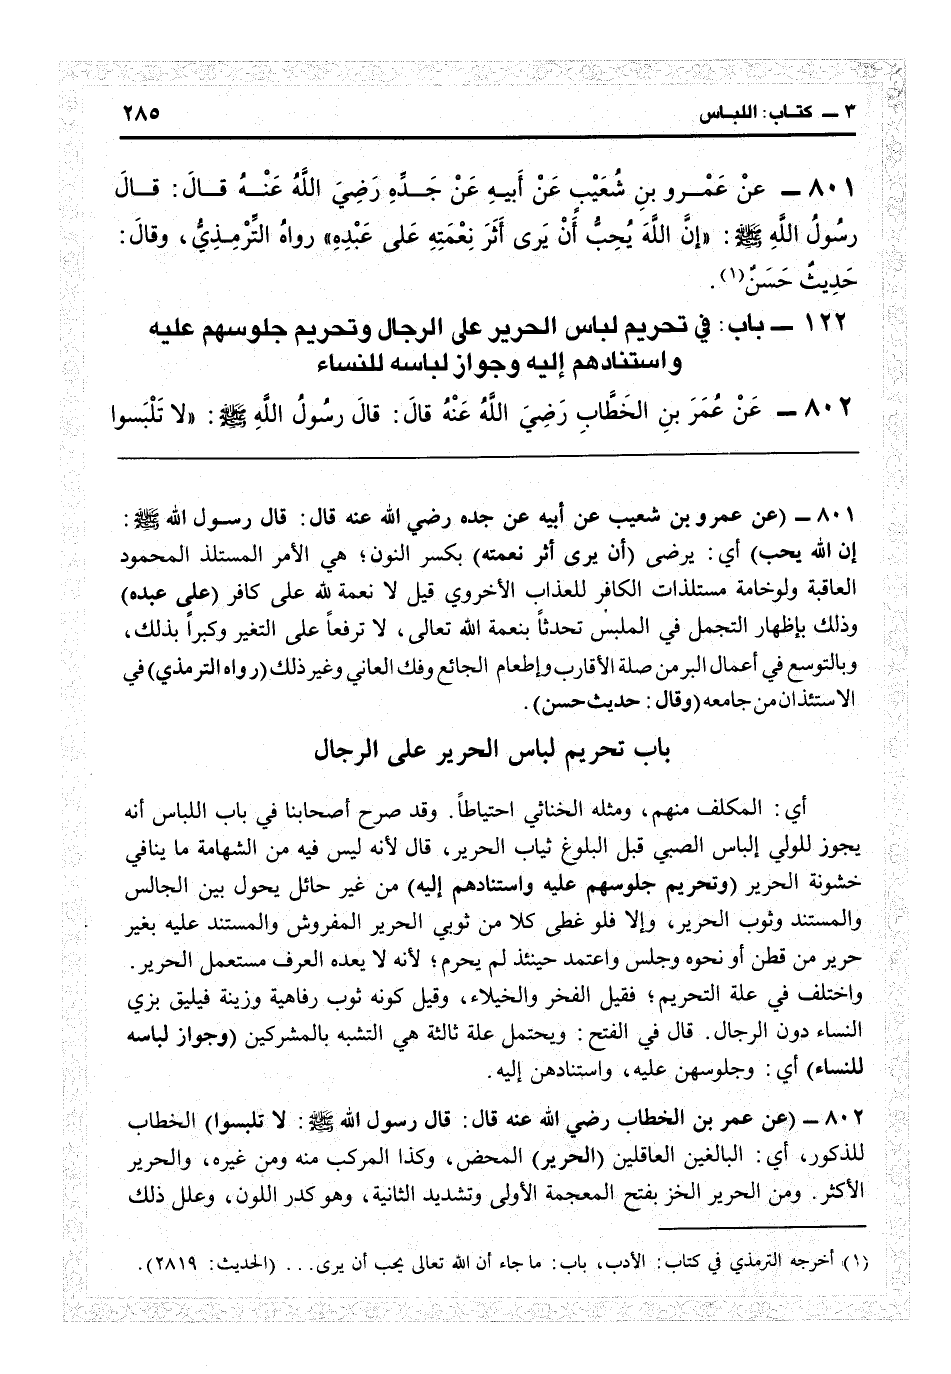 ٣ ــ كتـاب: اللبـاس ٢٨٥
٨٠١ ــ عنْ عَمْـرو بنِ شُعَيْبٍ عَنْ أَبيهِ عَنْ جَـدِّهِ رَضِيَ اللَّهُ عَنْـهُ قـالَ: قـالَ
رسُولُ اللَّهِ ﷺ: «إنَّ اللَّهَ يُحِبُّ أَنْ يَرى أَثَرَ نِعْمَتِهِ عَلى عَبْدِهِ» رواهُ التِّرْمِذِيُّ، وقالَ:
حَدِيثٌ حَسَنٌ(١).
١٢٢ ــ باب: في تحريم لباس الحرير على الرجال وتحريم جلوسهم عليه
واستنادهم إليه وجواز لباسه للنساء
٨٠٢ ــ عَنْ عُمَرَ بنِ الخَطَّابِ رَضِيَ اللَّهُ عَنْهُ قالَ: قالَ رسُولُ اللَّهِ ﷺ: «لا تَلْبَسوا
٨٠١ ــ (عن عمرو بن شعيب عن أبيه عن جده رضي الله عنه قال: قال رسـول الله ﷺ:
إن الله يحب) أي: يرضى (أن يرى أثر نعمته) بكسر النون؛ هي الأمر المستلذ المحمود
العاقبة ولوخامة مستلذات الكافر للعذاب الأخروي قيل لا نعمة لله على كافر (على عبده)
وذلك بإظهار التجمل في الملبس تحدثاً بنعمة الله تعالى، لا ترفعاً على التغير وكبراً بذلك،
وبالتوسع في أعمال البر من صلة الأقارب وإطعام الجائع وفك العاني وغير ذلك (رواه الترمذي) في
الاستئذان من جامعه (وقال: حديث حسن).
باب تحريم لباس الحرير على الرجال
أي: المكلف منهم، ومثله الخناثي احتياطاً. وقد صرح أصحابنا في باب اللباس أنه
يجوز للولي إلباس الصبي قبل البلوغ ثياب الحرير، قال لأنه ليس فيه من الشهامة ما ينافي
خشونة الحرير (وتحريم جلوسهم عليه واستنادهم إليه) من غير حائل يحول بين الجالس
والمستند وثوب الحرير، وإلا فلو غطى كلا من ثوبي الحرير المفروش والمستند عليه بغير
حرير من قطن أو نحوه وجلس واعتمد حينئذ لم يحرم؛ لأنه لا يعده العرف مستعمل الحرير.
واختلف في علة التحريم؛ فقيل الفخر والخيلاء، وقيل كونه ثوب رفاهية وزينة فيليق بزي
النساء دون الرجال. قال في الفتح: ويحتمل علة ثالثة هي التشبه بالمشركين (وجواز لباسه
للنساء) أي: وجلوسهن عليه، واستنادهن إليه.
٨٠٢ ــ (عن عمر بن الخطاب رضي الله عنه قال: قال رسول الله ﷺ: لا تلبسوا) الخطاب
للذكور، أي: البالغين العاقلين (الحرير) المحض، وكذا المركب منه ومن غيره، والحرير
الأكثر. ومن الحرير الخز بفتح المعجمة الأولى وتشديد الثانية، وهو كدر اللون، وعلل ذلك
(١) أخرجه الترمذي في كتاب: الأدب، باب: ما جاء أن الله تعالى يحب أن يرى... (الحديث: ٢٨١٩).